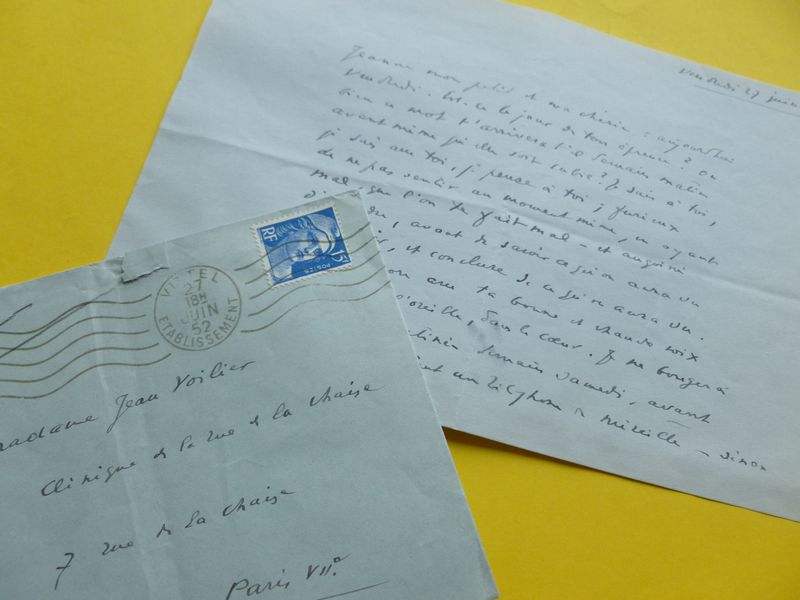 Vendredi 27 juin
Jeanne mon petit et ma chérie : aujourd'hui
Vendredi. Est-ce le jour de ton épreuve ? ou
bien ce mot t'arrivera-t-il demain matin
avant même qu'elle soit subie ? Je suis à toi,
je suis avec toi, je pense à toi ; furieux
de ne pas sentir au moment même, en ayant
mal, que l'on te fait mal — et angoissé
avant de savoir ce qu'on aura vu
et conclure de ce qu'on aura vu.
avec ta bonne et chaude voix
l'oreille, dans le cœur. Je ne bougerai
demain samedi, avant
un téléphone à Mireille — sinon
RF
15
POSTES
VITTEL
27
18H
JUIN
52
ETABLISSEMENT
Madame Jean Voilier
Clinique de la rue de la Chaise
7 rue de la Chaise
Paris VIIe